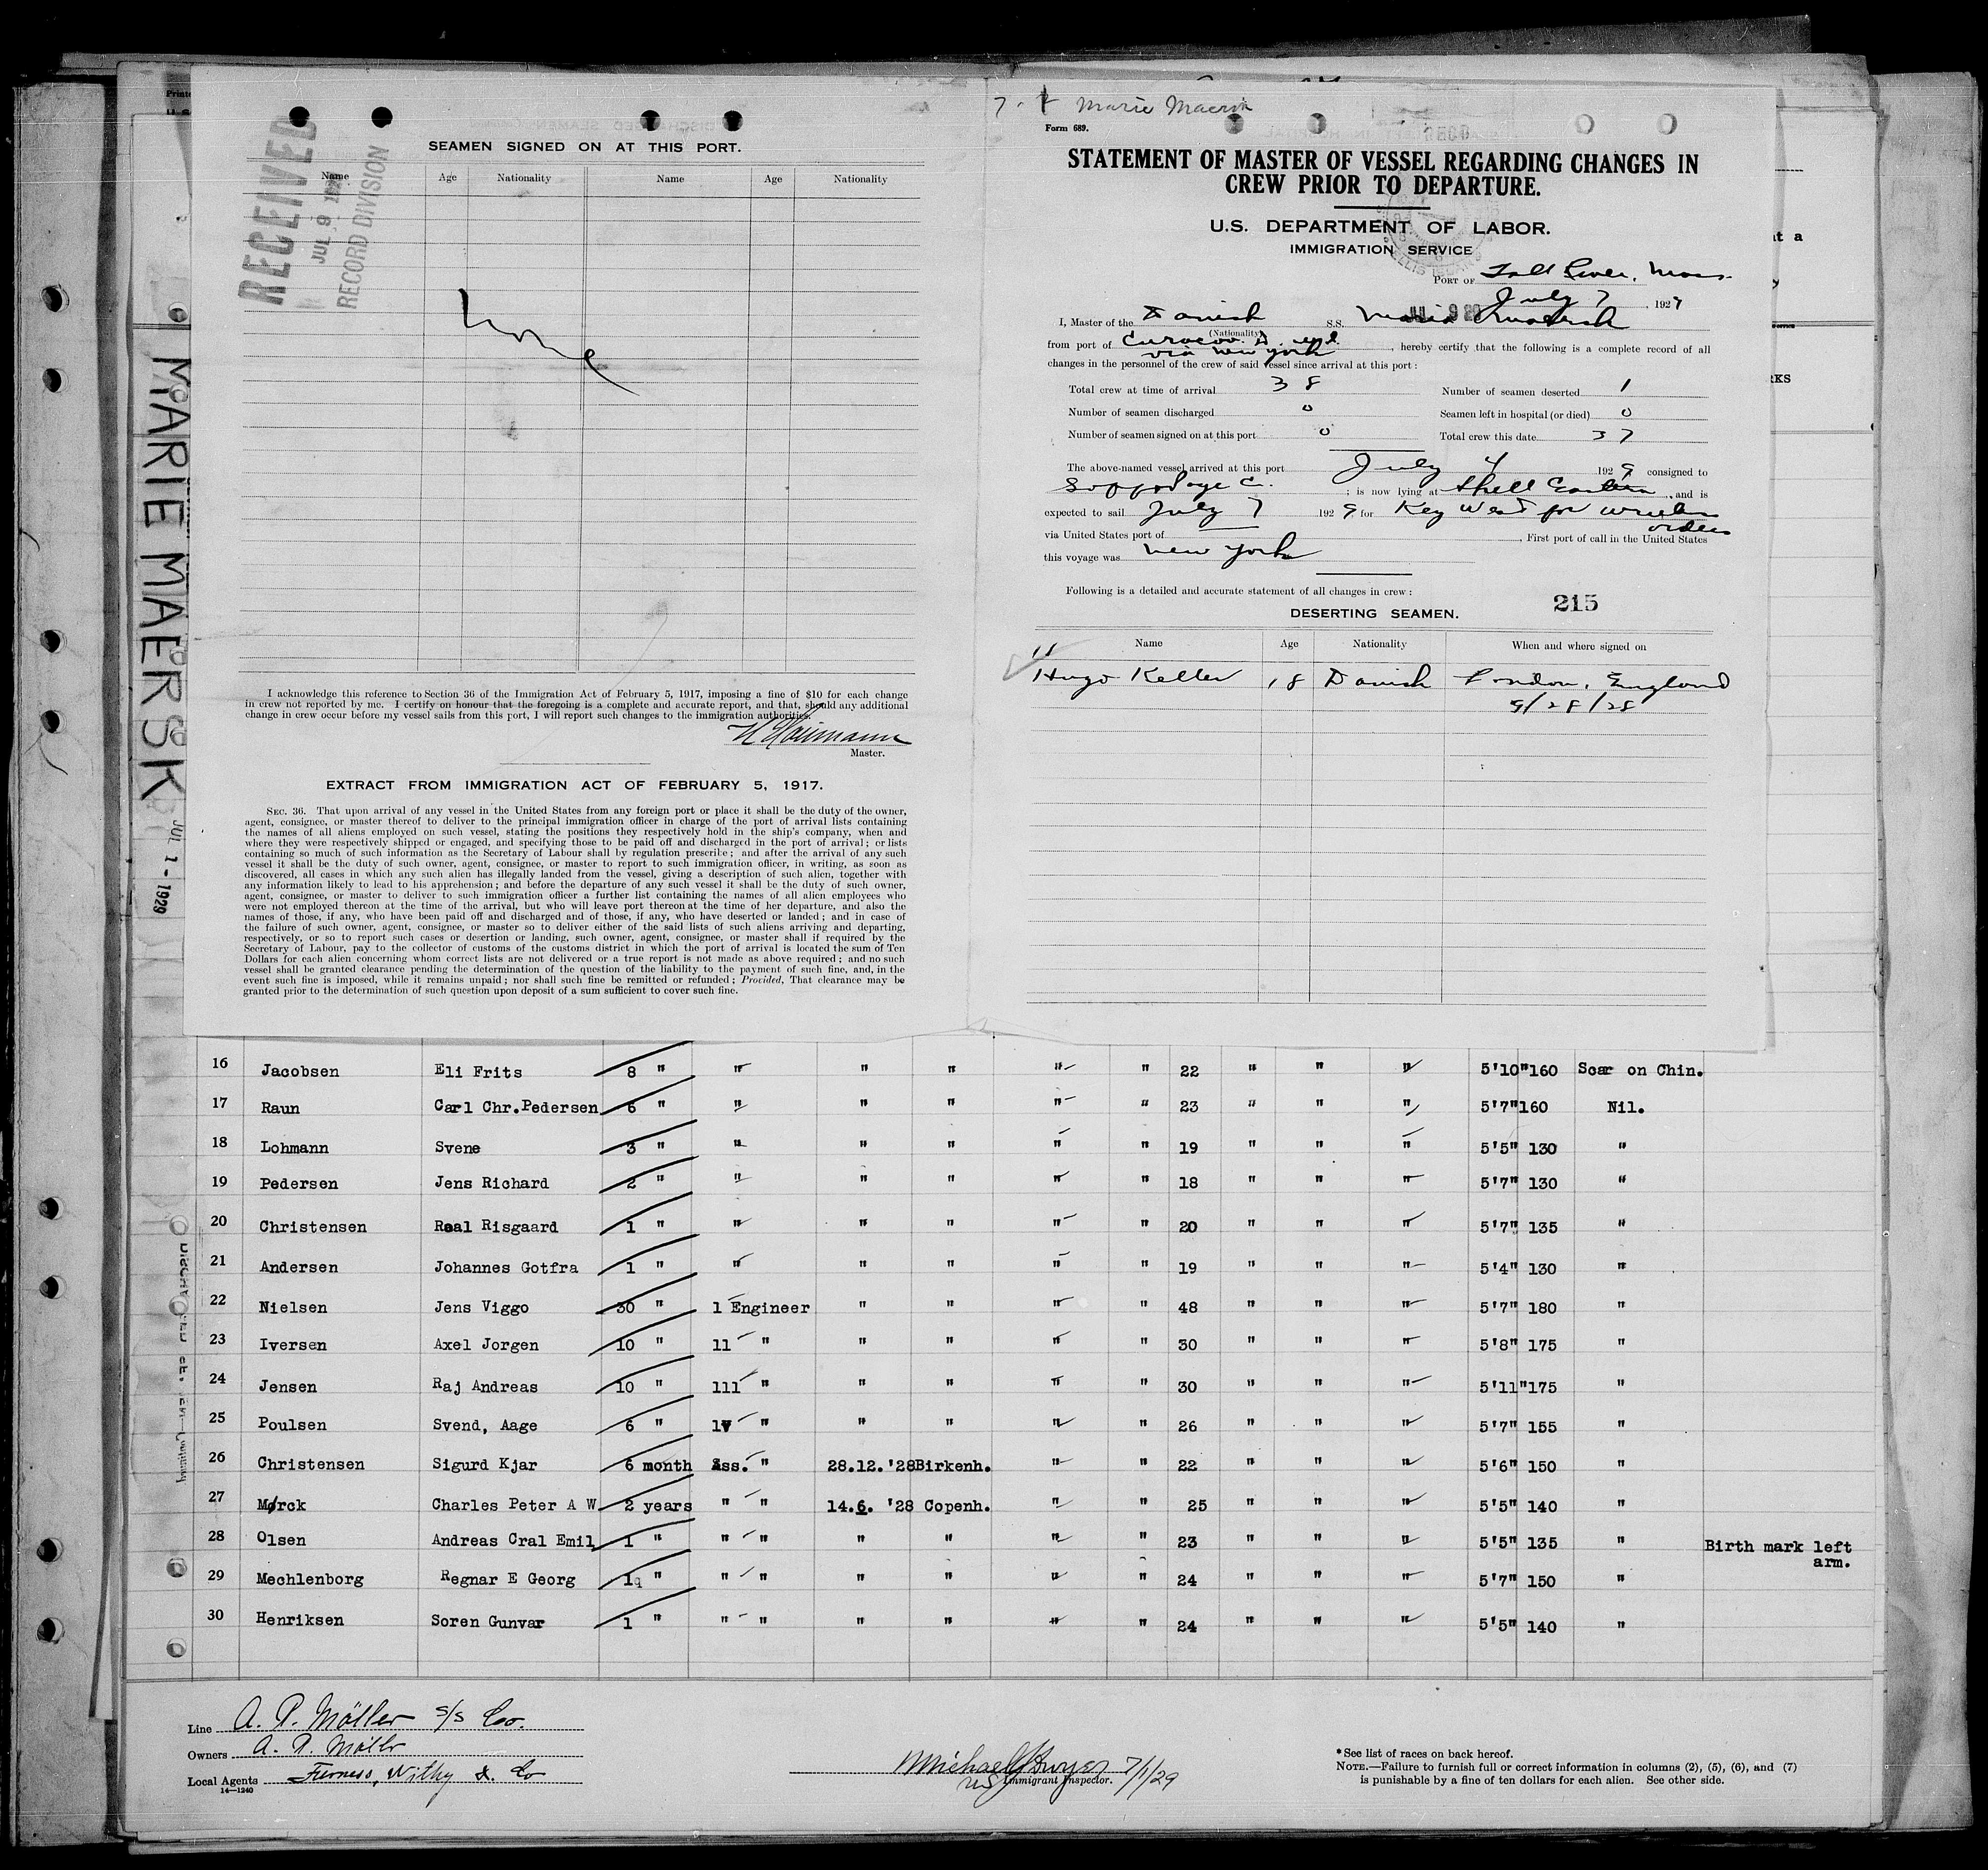 SEAMEN SIGNED ON AT THIS PORT.
Name Age Nationality Name Age Nationality
RECEIVED
JUL 9
RECORD DIVISION
None
I acknowledge this reference to Section 36 of the Immigration Act of February 5, 1917, imposing a fine of $10 for each change
in crew not reported by me. I certify on honour that the foregoing is a complete and accurate report, and that, should any additional
change in crew occur before my vessel sails from this port, I will report such changes to the immigration authorities.
Master.
EXTRACT FROM IMMIGRATION ACT OF FEBRUARY 5, 1917.
SEC. 36. That upon arrival of any vessel in the United States from any foreign port or place it shall be the duty of the owner,
agent, consignee, or master thereof to deliver to the principal immigration officer in charge of the port of arrival lists containing
the names of all aliens employed on such vessel, stating the positions they respectively hold in the ship's company, when and
where they were respectively shipped or engaged, and specifying those to be paid off and discharged in the port of arrival; or lists
containing so much of such information as the Secretary of Labour shall by regulation prescribe; and after the arrival of any such
vessel it shall be the duty of such owner, agent, consignee, or master to report to such immigration officer, in writing, as soon as
discovered, all cases in which any such alien has illegally landed from the vessel, giving a description of such alien, together with
any information likely to lead to his apprehension; and before the departure of any such vessel it shall be the duty of such owner,
agent, consignee, or master to deliver to such immigration officer a further list containing the names of all alien employees who
were not employed thereon at the time of the arrival, but who will leave port thereon at the time of her departure, and also the
names of those, if any, who have been paid off and discharged and of those, if any, who have deserted or landed; and in case of
the failure of such owner, agent, consignee, or master so to deliver either of the said lists of such aliens arriving and departing,
respectively, or so to report such cases or desertion or landing, such owner, agent, consignee, or master shall if required by the
Secretary of Labour, pay to the collector of customs of the customs district in which the port of arrival is located the sum of Ten
Dollars for each alien concerning whom correct lists are not delivered or a true report is not made as above required; and no such
vessel shall be granted clearance pending the determination of the question of the liability to the payment of such fine, and, in the
event such fine is imposed, while it remains unpaid; nor shall such fine be remitted or refunded; Provided, That clearance may be
granted prior to the determination of such question upon deposit of a sum sufficient to cover such fine.
MARIE MAERSK
JUL 1 - 1929
Marie Maersk
Form 689.
STATEMENT OF MASTER OF VESSEL REGARDING CHANGES IN
CREW PRIOR TO DEPARTURE.
U.S. DEPARTMENT OF LABOR.
IMMIGRATION SERVICE
PORT OF Fall River, Mass.
July 7, 1929
I, Master of the Danish S.S. Marie Maersk
(Nationality)
from port of Curacao, D. W. I. via New York, hereby certify that the following is a complete record of all
changes in the personnel of the crew of said vessel since arrival at this port:
Total crew at time of arrival 38 Number of seamen deserted 1
Number of seamen discharged 0 Seamen left in hospital (or died) 0
Number of seamen signed on at this port 0 Total crew this date 37
The above-named vessel arrived at this port July 4 1929 consigned to
; is now lying at Shell Eastern, and is
expected to sail July 7 1929 for Key West for orders
via United States port of , First port of call in the United States
this voyage was New York
Following is a detailed and accurate statement of all changes in crew:
215
DESERTING SEAMEN.
Name Age Nationality When and where signed on
Hugo Keller 18 Danish London, England
9/28/28
16 Jacobsen Eli Frits 8 " " " " " " 22 " " " 5'10" 160 Scar on Chin.
17 Raun Carl Chr.Pedersen 6 " " " " " " 23 " " " 5'7" 160 Nil.
18 Lohmann Svene 3 " " " " " " 19 " " " 5'5" 130 "
19 Pedersen Jens Richard 2 " " " " " " 18 " " " 5'7" 130 "
20 Christensen Roal Risgaard 1 " " " " " " 20 " " " 5'7" 135 "
21 Andersen Johannes Gotfra 1 " " " " " " 19 " " " 5'4" 130 "
22 Nielsen Jens Viggo 30 " 1 Engineer " " " " 48 " " " 5'7" 180 "
23 Iversen Axel Jorgen 10 " 11 " " " " " 30 " " " 5'8" 175 "
24 Jensen Raj Andreas 10 " 111 " " " " " 30 " " " 5'11" 175 "
25 Poulsen Svend, Aage 6 " 1V " " " " " 26 " " " 5'7" 155 "
26 Christensen Sigurd Kjar 6 month Ass. " 28.12.'28 Birkenh. " " 22 " " " 5'6" 150 "
27 Mørck Charles Peter A W 2 years " " 14.6. '28 Copenh. " " 25 " " " 5'5" 140 "
28 Olsen Andreas Cral Emil 1 " " " " " " " 23 " " " 5'5" 135 " Birth mark left arm.
29 Mechlenborg Regnar E Georg 1 " " " " " " " 24 " " " 5'7" 150 "
30 Henriksen Soren Gunvar 1 " " " " " " " 24 " " " 5'5" 140 "
Line A. P. Möller S/S Co.
Owners A. P. Möller
Local Agents Furness, Withy & Co
14-1240
Michael J Dwyer 7/1/29
US Immigrant Inspector.
* See list of races on back hereof.
NOTE.—Failure to furnish full or correct information in columns (2), (5), (6), and (7)
is punishable by a fine of ten dollars for each alien. See other side.